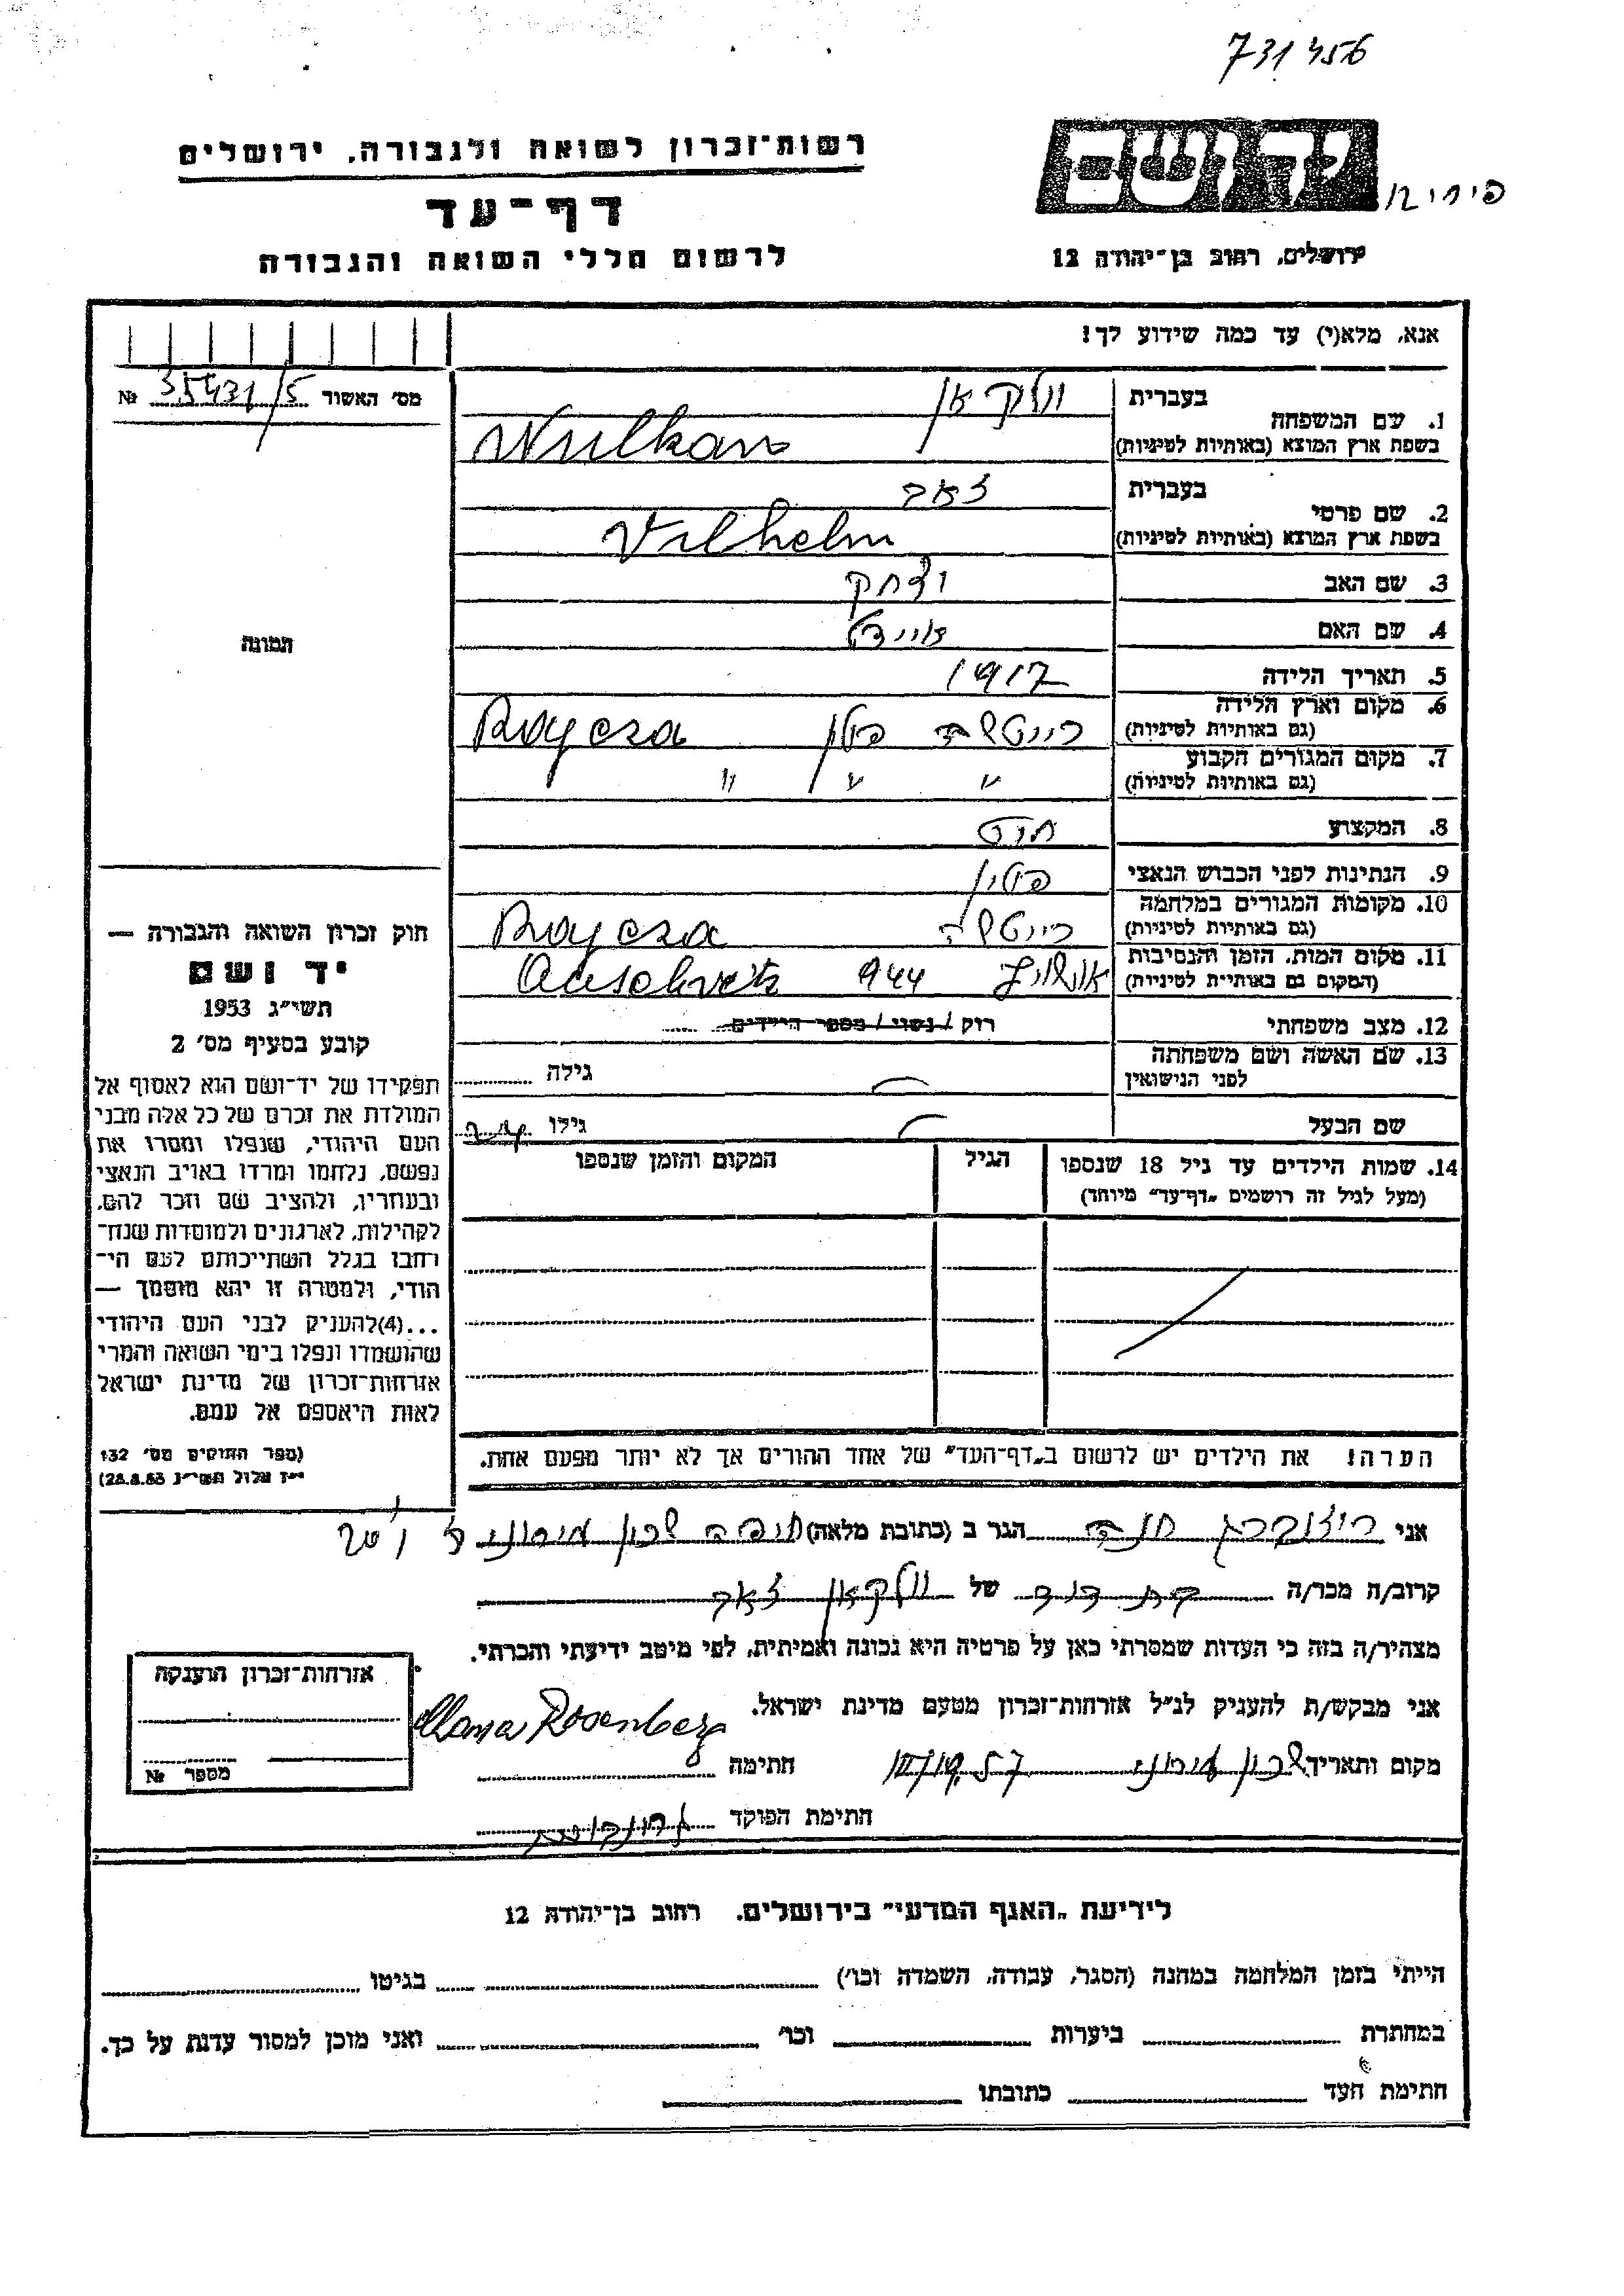 731456
רשות־זכרון לשואה ולגבורה, ירושלים
יד ושם
דף־עד
ירושלים, רחוב בן־יהודה 12
לרשום חללי השואה והגבורה
אנא, מלא(י) עד כמה שידוע לך!
מס׳ האשור 35431/5 №
1. שם המשפחה בעברית וולקאן
בשפת ארץ המוצא (באותיות לטיניות) Wulkan
2. שם פרטי בעברית זאב
בשפת ארץ המוצא (באותיות לטיניות) Vilhelm
3. שם האב יצחק
4. שם האם
התמונה
5. תאריך הלידה 1917
6. מקום וארץ הלידה (גם באותיות לטיניות) רייטשה פולין Raycza
7. מקום המגורים הקבוע (גם באותיות לטיניות) " " "
8. המקצוע
9. הנתינות לפני הכבוש הנאצי פולין
10. מקומות המגורים במלחמה (גם באותיות לטיניות) רייטשה Raycza
11. מקום המות, הזמן והנסיבות (המקום גם באותיית לטיניות) אושוויץ 944 Auschwitz
12. מצב משפחתי רוק / נשוי / מספר הילדים
13. שם האשה ושם משפחתה לפני הנישואין גילה
שם הבעל גילו
14. שמות הילדים עד גיל 18 שנספו (מעל לגיל זה רושמים „דף־עד״ מיוחד) הגיל המקום והזמן שנספו
חוק זכרון השואה והגבורה —
יד ושם
תשי״ג 1953
קובע בסעיף מס׳ 2
תפקידו של יד־ושם הוא לאסוף אל
המולדת את זכרם של כל אלה מבני
העם היהודי, שנפלו ומסרו את
נפשם, נלחמו ומרדו באויב הנאצי
ובעוזריו, ולהציב שם וזכר להם,
לקהילות, לארגונים ולמוסדות שנח־
רחבו בגלל השתייכותם לעם הי־
הודי, ולמטרה זו יהא מוסמך —
...(4)להעניק לבני העם היהודי
שהושמדו ונפלו בימי השואה והמרי
אזרחות־זכרון של מדינת ישראל
לאות היאספם אל עמם.
(ספר החוקים מס׳ 132
י״ז אלול תשי״ג 28.8.53)
הערה! את הילדים יש לרשום ב„דף־העד״ של אחד ההורים אך לא יותר מפעם אחת.
אני רוזנברג חנה הגר ב (כתובת מלאה) חיפה שכון
קרוב/ה מכר/ה בת דוד של וולקאן זאב
מצהיר/ה בזה כי העדות שמסרתי כאן על פרטיה היא נכונה ואמיתית, לפי מיטב ידיעתי והכרתי.
אני מבקש/ת להעניק לנ״ל אזרחות־זכרון מטעם מדינת ישראל.
מקום ותאריך שכון חתימה Hana Rosenberg
חתימת הפוקד
אזרחות־זכרון הוענקה
מספר №
לידיעת „האגף המדעי״ בירושלים, רחוב בן־יהודה 12
הייתי בזמן המלחמה במחנה (הסגר, עבודה, השמדה וכו׳) בגיטו
במחתרת ביערות וכו׳ ואני מוכן למסור עדות על כך.
חתימת העד כתובתו